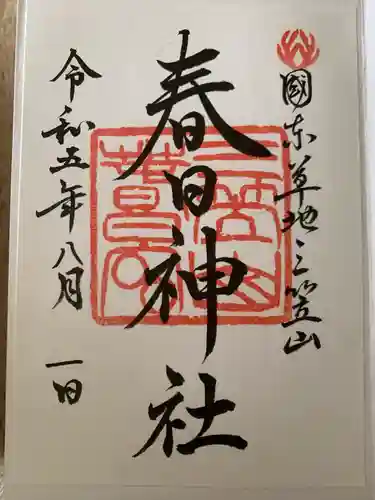 國东草地三笠山
春日神社
令和五年八月一日